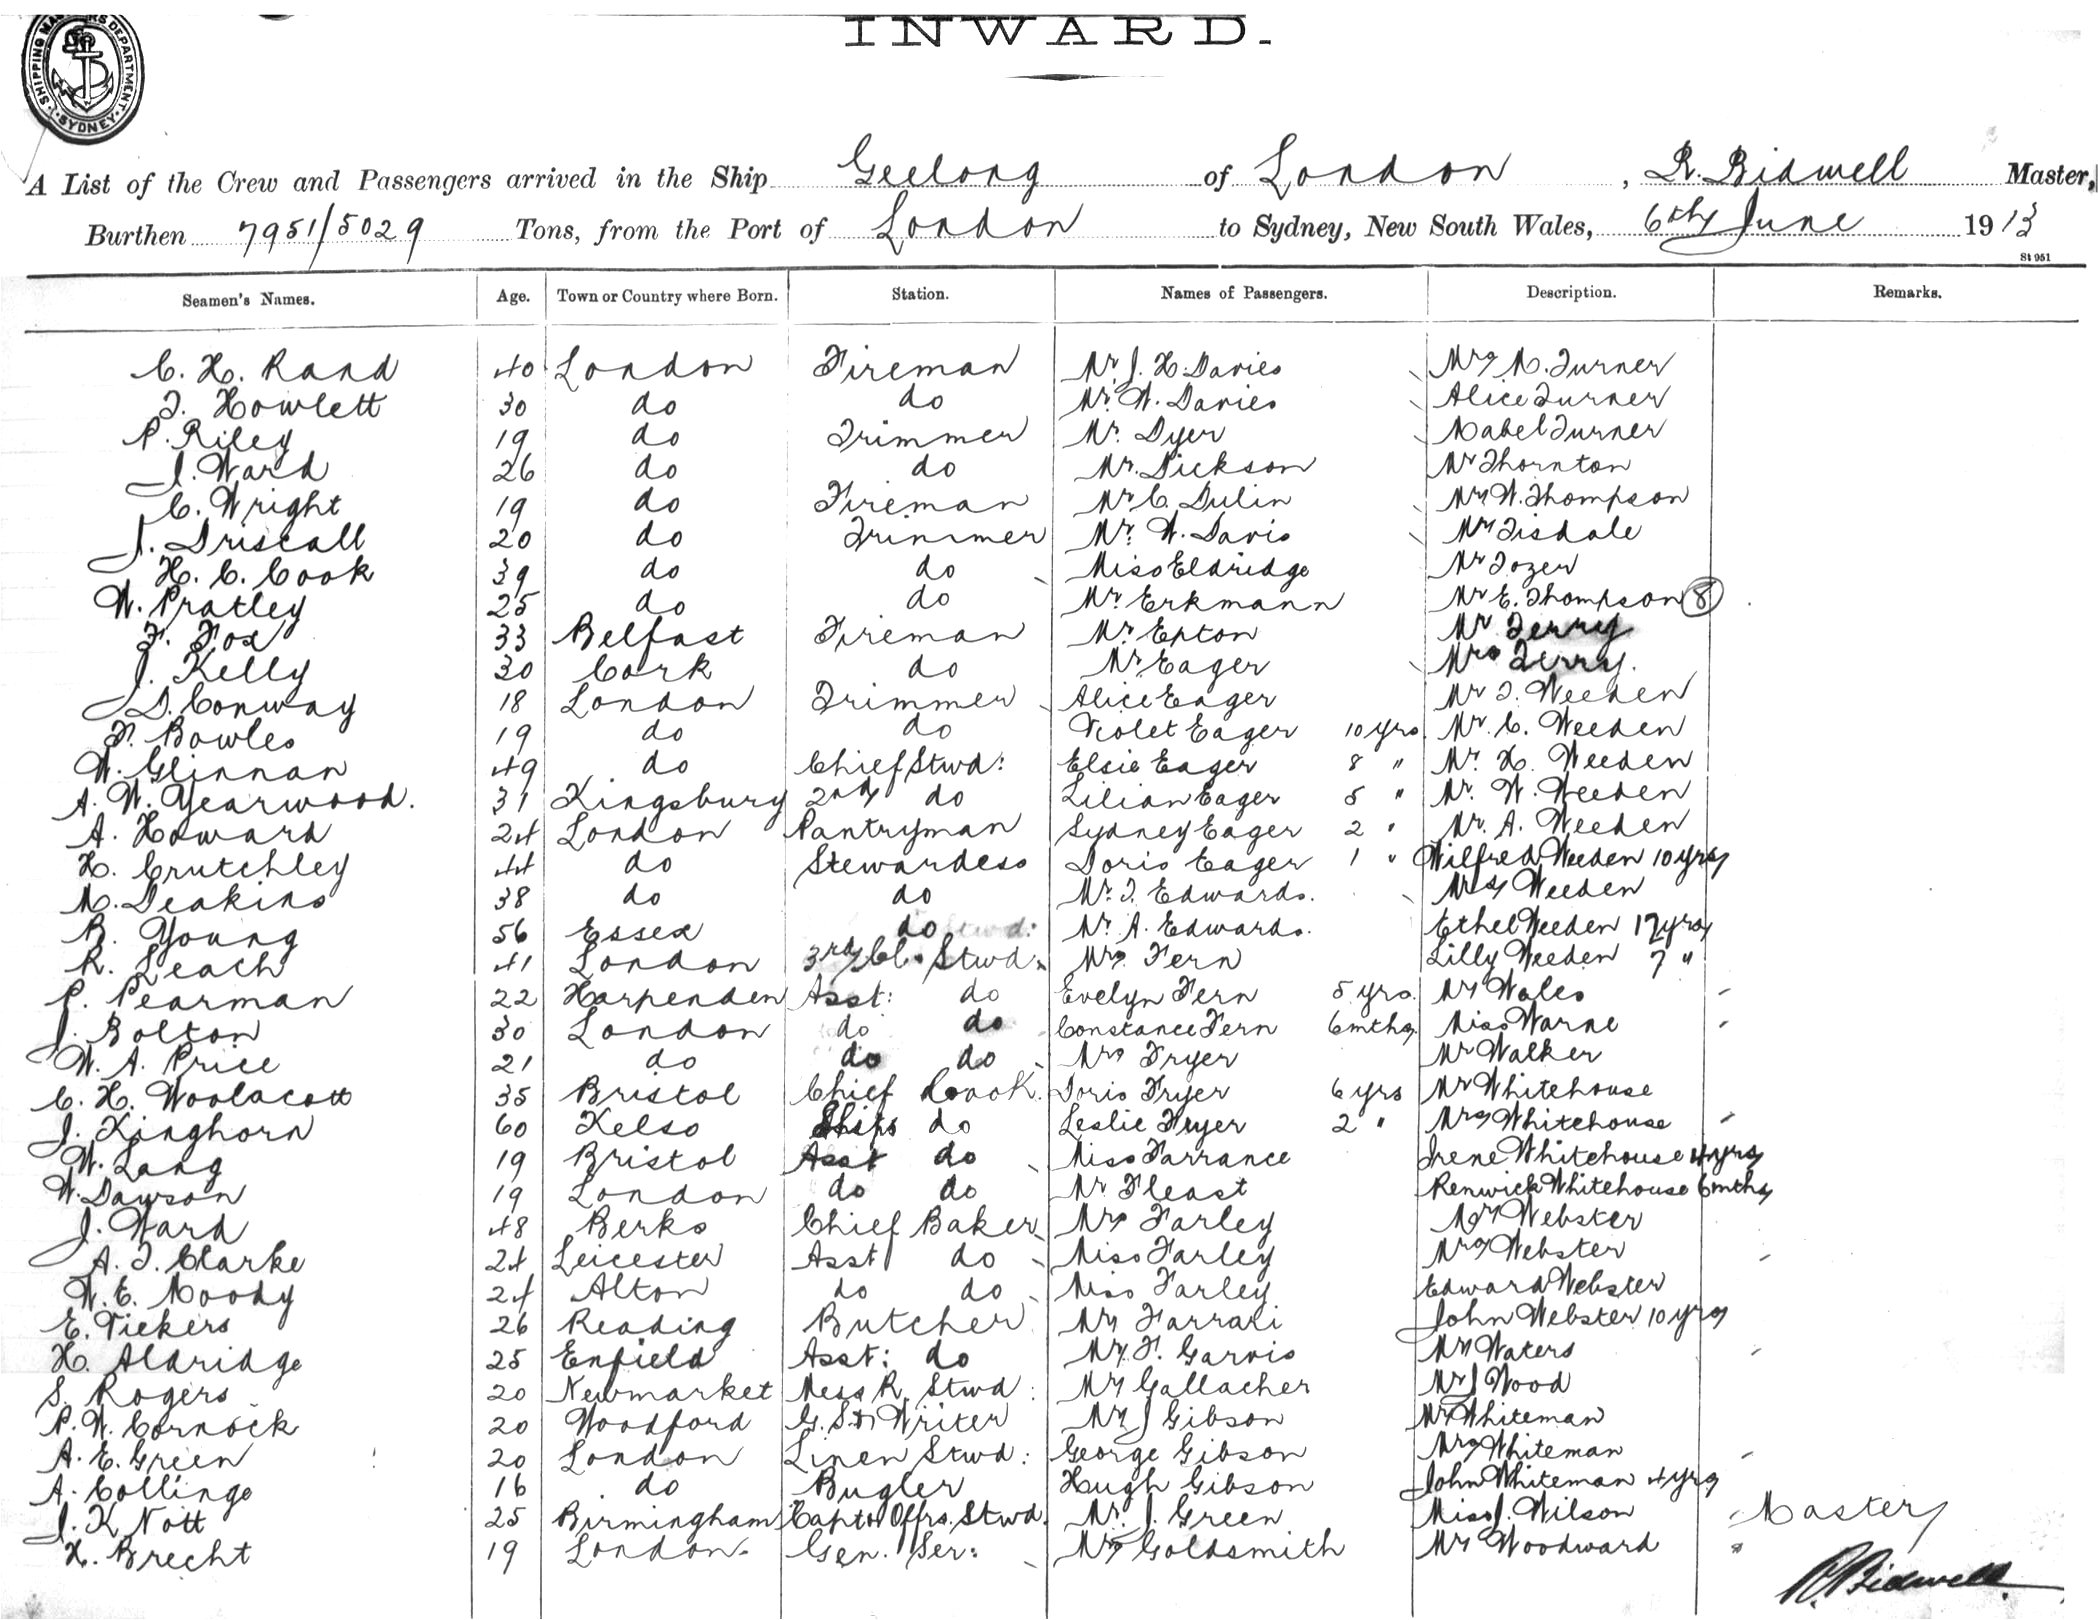 SHIPPING MASTERS DEPARTMENT SYDNEY
INWARD.
A List of the Crew and Passengers arrived in the Ship Geelong of London, R. Bidwell Master,
Burthen 7951/5029 Tons, from the Port of London to Sydney, New South Wales, 6th June 1913
St 951
Seamen's Names. Age. Town or Country where Born. Station. Names of Passengers. Description. Remarks.
C. H. Rand 40 London Fireman Mr. J. H. Davies Mrs M. Turner
T. Howlett 30 do do Mr. W. Davies Alice Turner
P. Riley 19 do Trimmer Mr. Dyer Mabel Turner
J. Ward 26 do do Mr. Dickson Mr Thornton
C. Wright 19 do Fireman Mr C. Dulin Mr W. Thompson
J. Driscall 20 do Trimmer Mr. W. Davis Mr Tisdale
H. C. Cook 39 do do Miss Eldridge Mr Tozer
W. Pratley 25 do do Mr. Erkmann Mr E. Thompson 8
F. Fox 33 Belfast Fireman Mr. Epton Mr Terry
J. Kelly 30 Cork do Mr. Eager Mrs Terry.
D. Conway 18 London Trimmer Alice Eager Mr T. Weeden
F. Bowles 19 do do Violet Eager 10 yrs Mr. C. Weeden
W. Glinnan 49 do Chief Stwd: Elsie Eager 8 " Mr. H. Weeden
A. W. Yearwood. 31 Kingsbury 2nd do Lilian Eager 5 " Mr. W. Weeden
A. Howard 24 London Pantryman Sydney Eager 2 " Mr. A. Weeden
H. Crutchley 44 do Stewardess Doris Eager 1 " Wilfred Weeden 10 yrs
M. Deakins 38 do do Mr. T. Edwards. Mrs Weeden
B. Young 56 Essex do Mr. A. Edwards. Ethel Weeden 12 yrs
R. Leach 41 London 3rd Cl. Stwd. Mrs. Fern Lilly Weeden 7 "
P. Pearman 22 Harpenden Asst: do Evelyn Fern 5 yrs. Mr Wales
J. Bolton 30 London do do Constance Fern 6 mths. Miss Warne
W. A. Price 21 do do do Mrs Fryer Mr Walker
C. H. Woolacott 35 Bristol Chief Cook. Doris Fryer 6 yrs Mr Whitehouse
J. Kinghorn 60 Kelso Ships do Leslie Fryer 2 " Mrs Whitehouse
W. Lang 19 Bristol Asst do Miss Farrance Irene Whitehouse 4 yrs
W. Dawson 19 London do do Mr Fleast Renwick Whitehouse 6 mths
J. Ward 48 Berks Chief Baker Mrs Farley Mr Webster
A. J. Clarke 24 Leicester Asst do Miss Farley Mrs Webster
W. E. Moody 24 Alton do do Miss Farley Edward Webster
E. Vickers 26 Reading Butcher Mr Farrari John Webster 10 yrs
H. Aldridge 25 Enfield Asst: do Mr. F. Garvis Mr Waters
S. Rogers 20 Newmarket Mess R. Stwd: Mr Gallacher Mr J Wood
P. W. Cornock 20 Woodford G. St Writer Mr J Gibson Mr Whiteman
A. E. Green 20 London Linen Stwd: George Gibson Mrs Whiteman
A. Collings 16 do Bugler Hugh Gibson John Whiteman 4 yrs
J. K Nott 25 Birmingham Capts Offrs. Stwd. Mr. J. Green Miss J. Wilson Master
H. Brecht 19 London. Gen. Ser: Mrs Goldsmith Mr Woodward "
R. Bidwell.